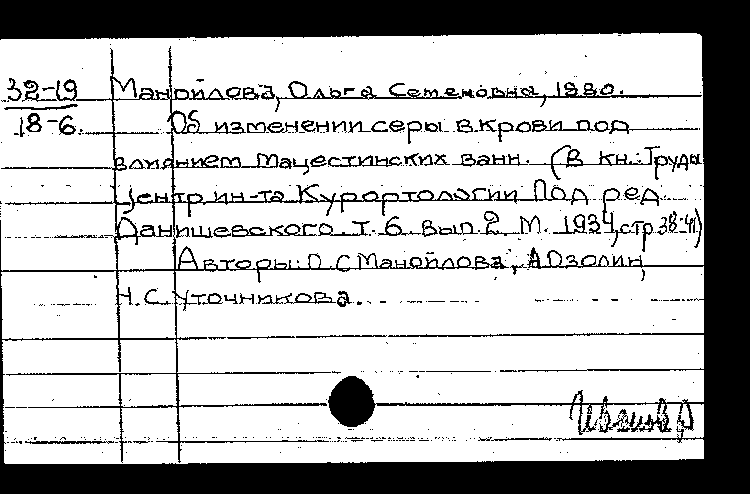 32-19 Манойлова, Ольга Семеновна, 1880.
18-6. Об изменении серы в крови под
влиянием мацестинских ванн. (В кн.: Труды
Центр ин-та Курортологии Под ред
Данишевского. т. 6. Вып. 2. М. 1934, стр 38-41)
Авторы: О. С Манойлова, А Озолин,
Н. С. Уточникова.